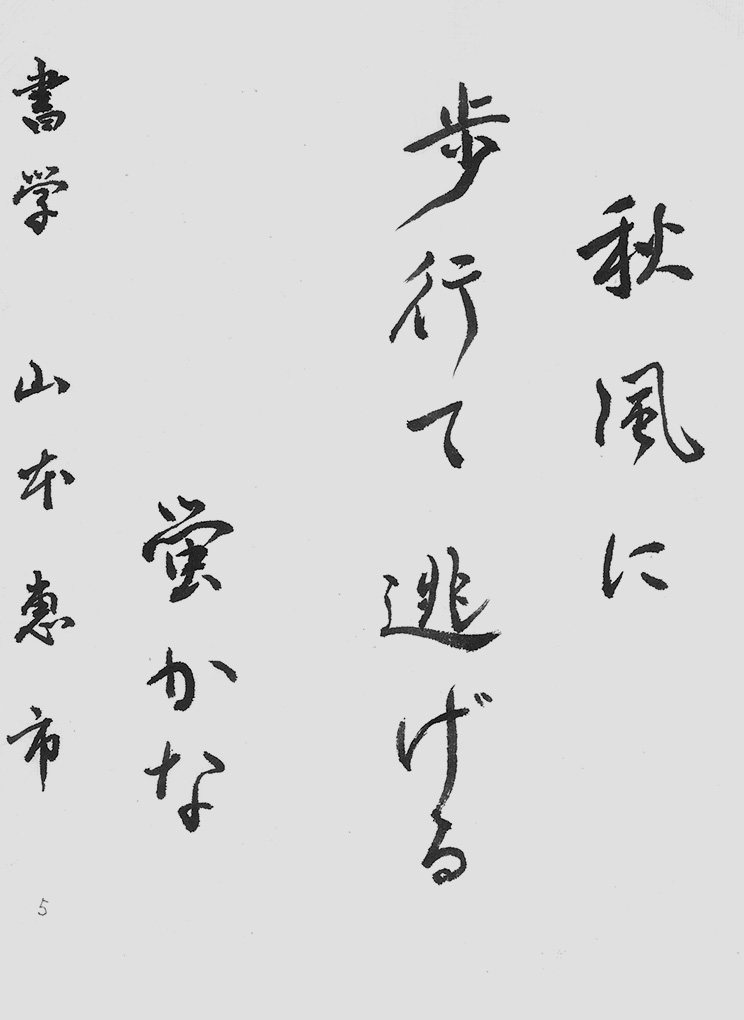 秋風に
歩行て逃げる
蛍かな
書学 山本恵市
5